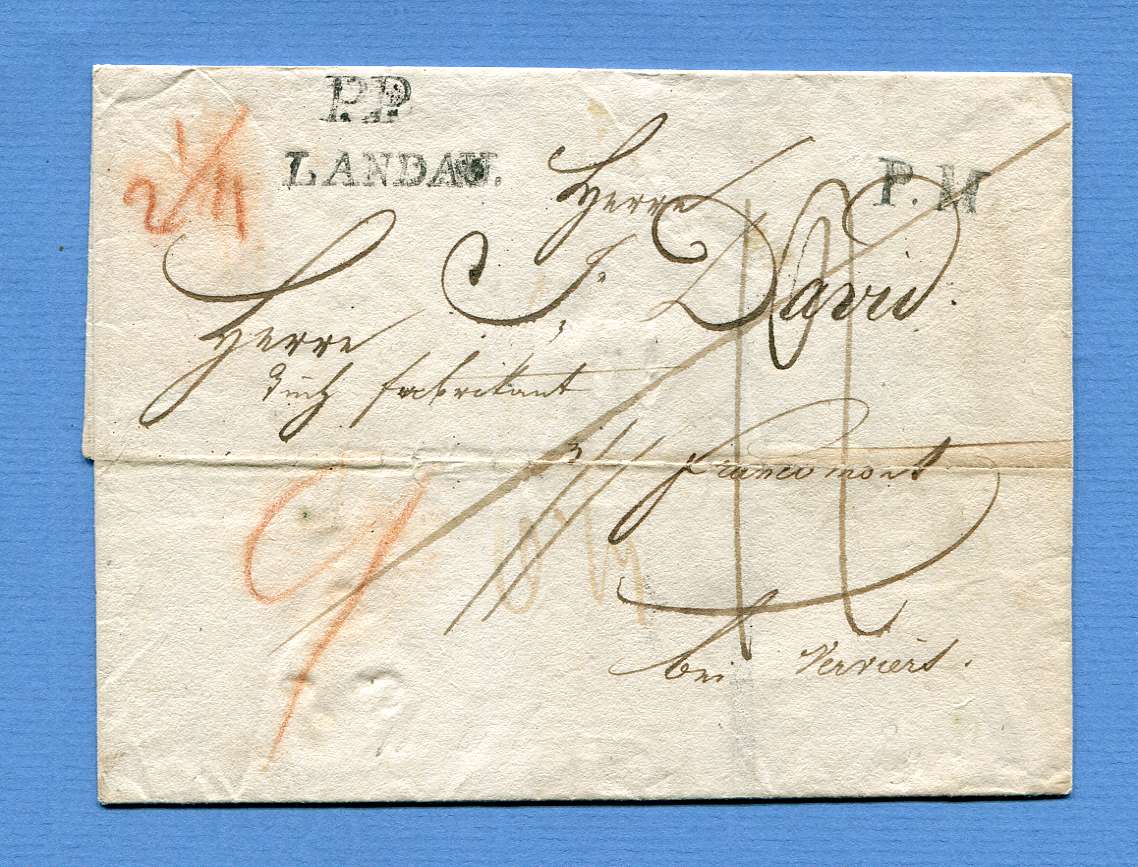 P.P.
LANDAU.
P. M
Herrn
Herrn J. David
Tuch fabrikant
Francomont
bei Verviers.